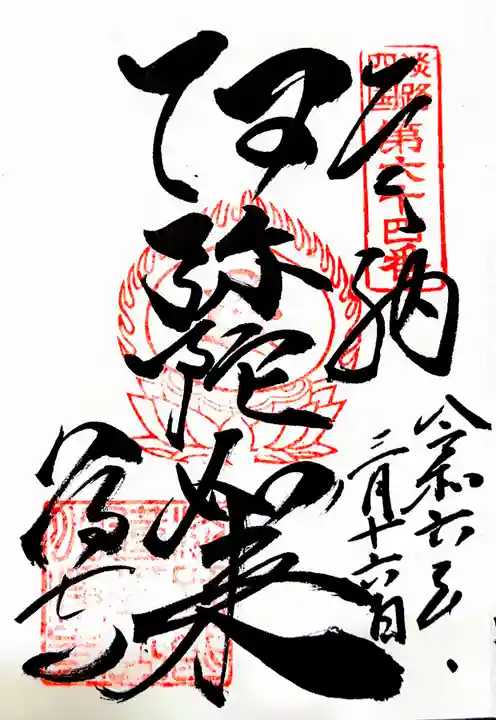 淡路
四国
第六十四番
奉納
阿弥陀如来
令和六年
三月十六日